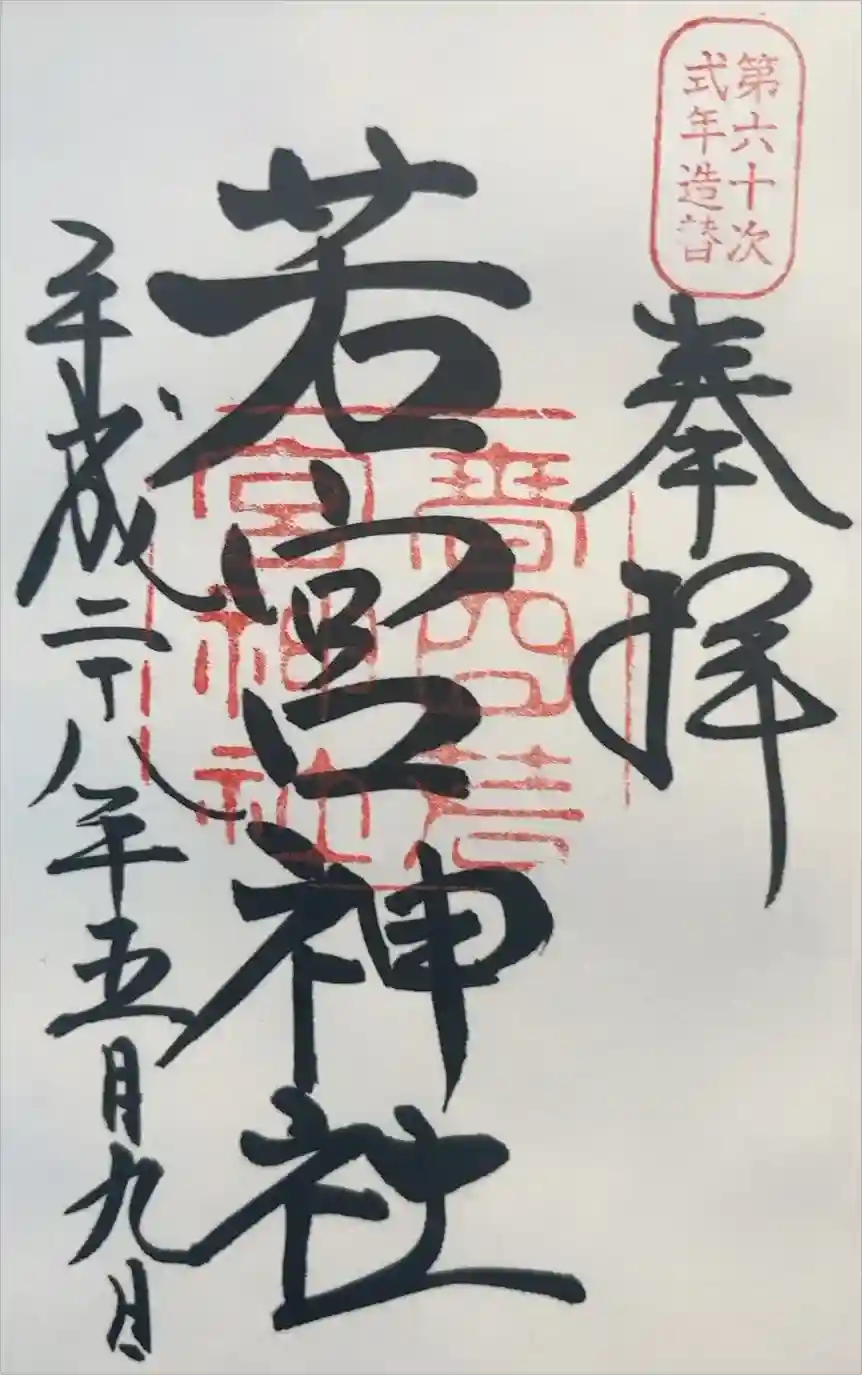 第六十次
式年造替
奉拝
若宮神社
春日若
宮神社
平成二十八年五月九日